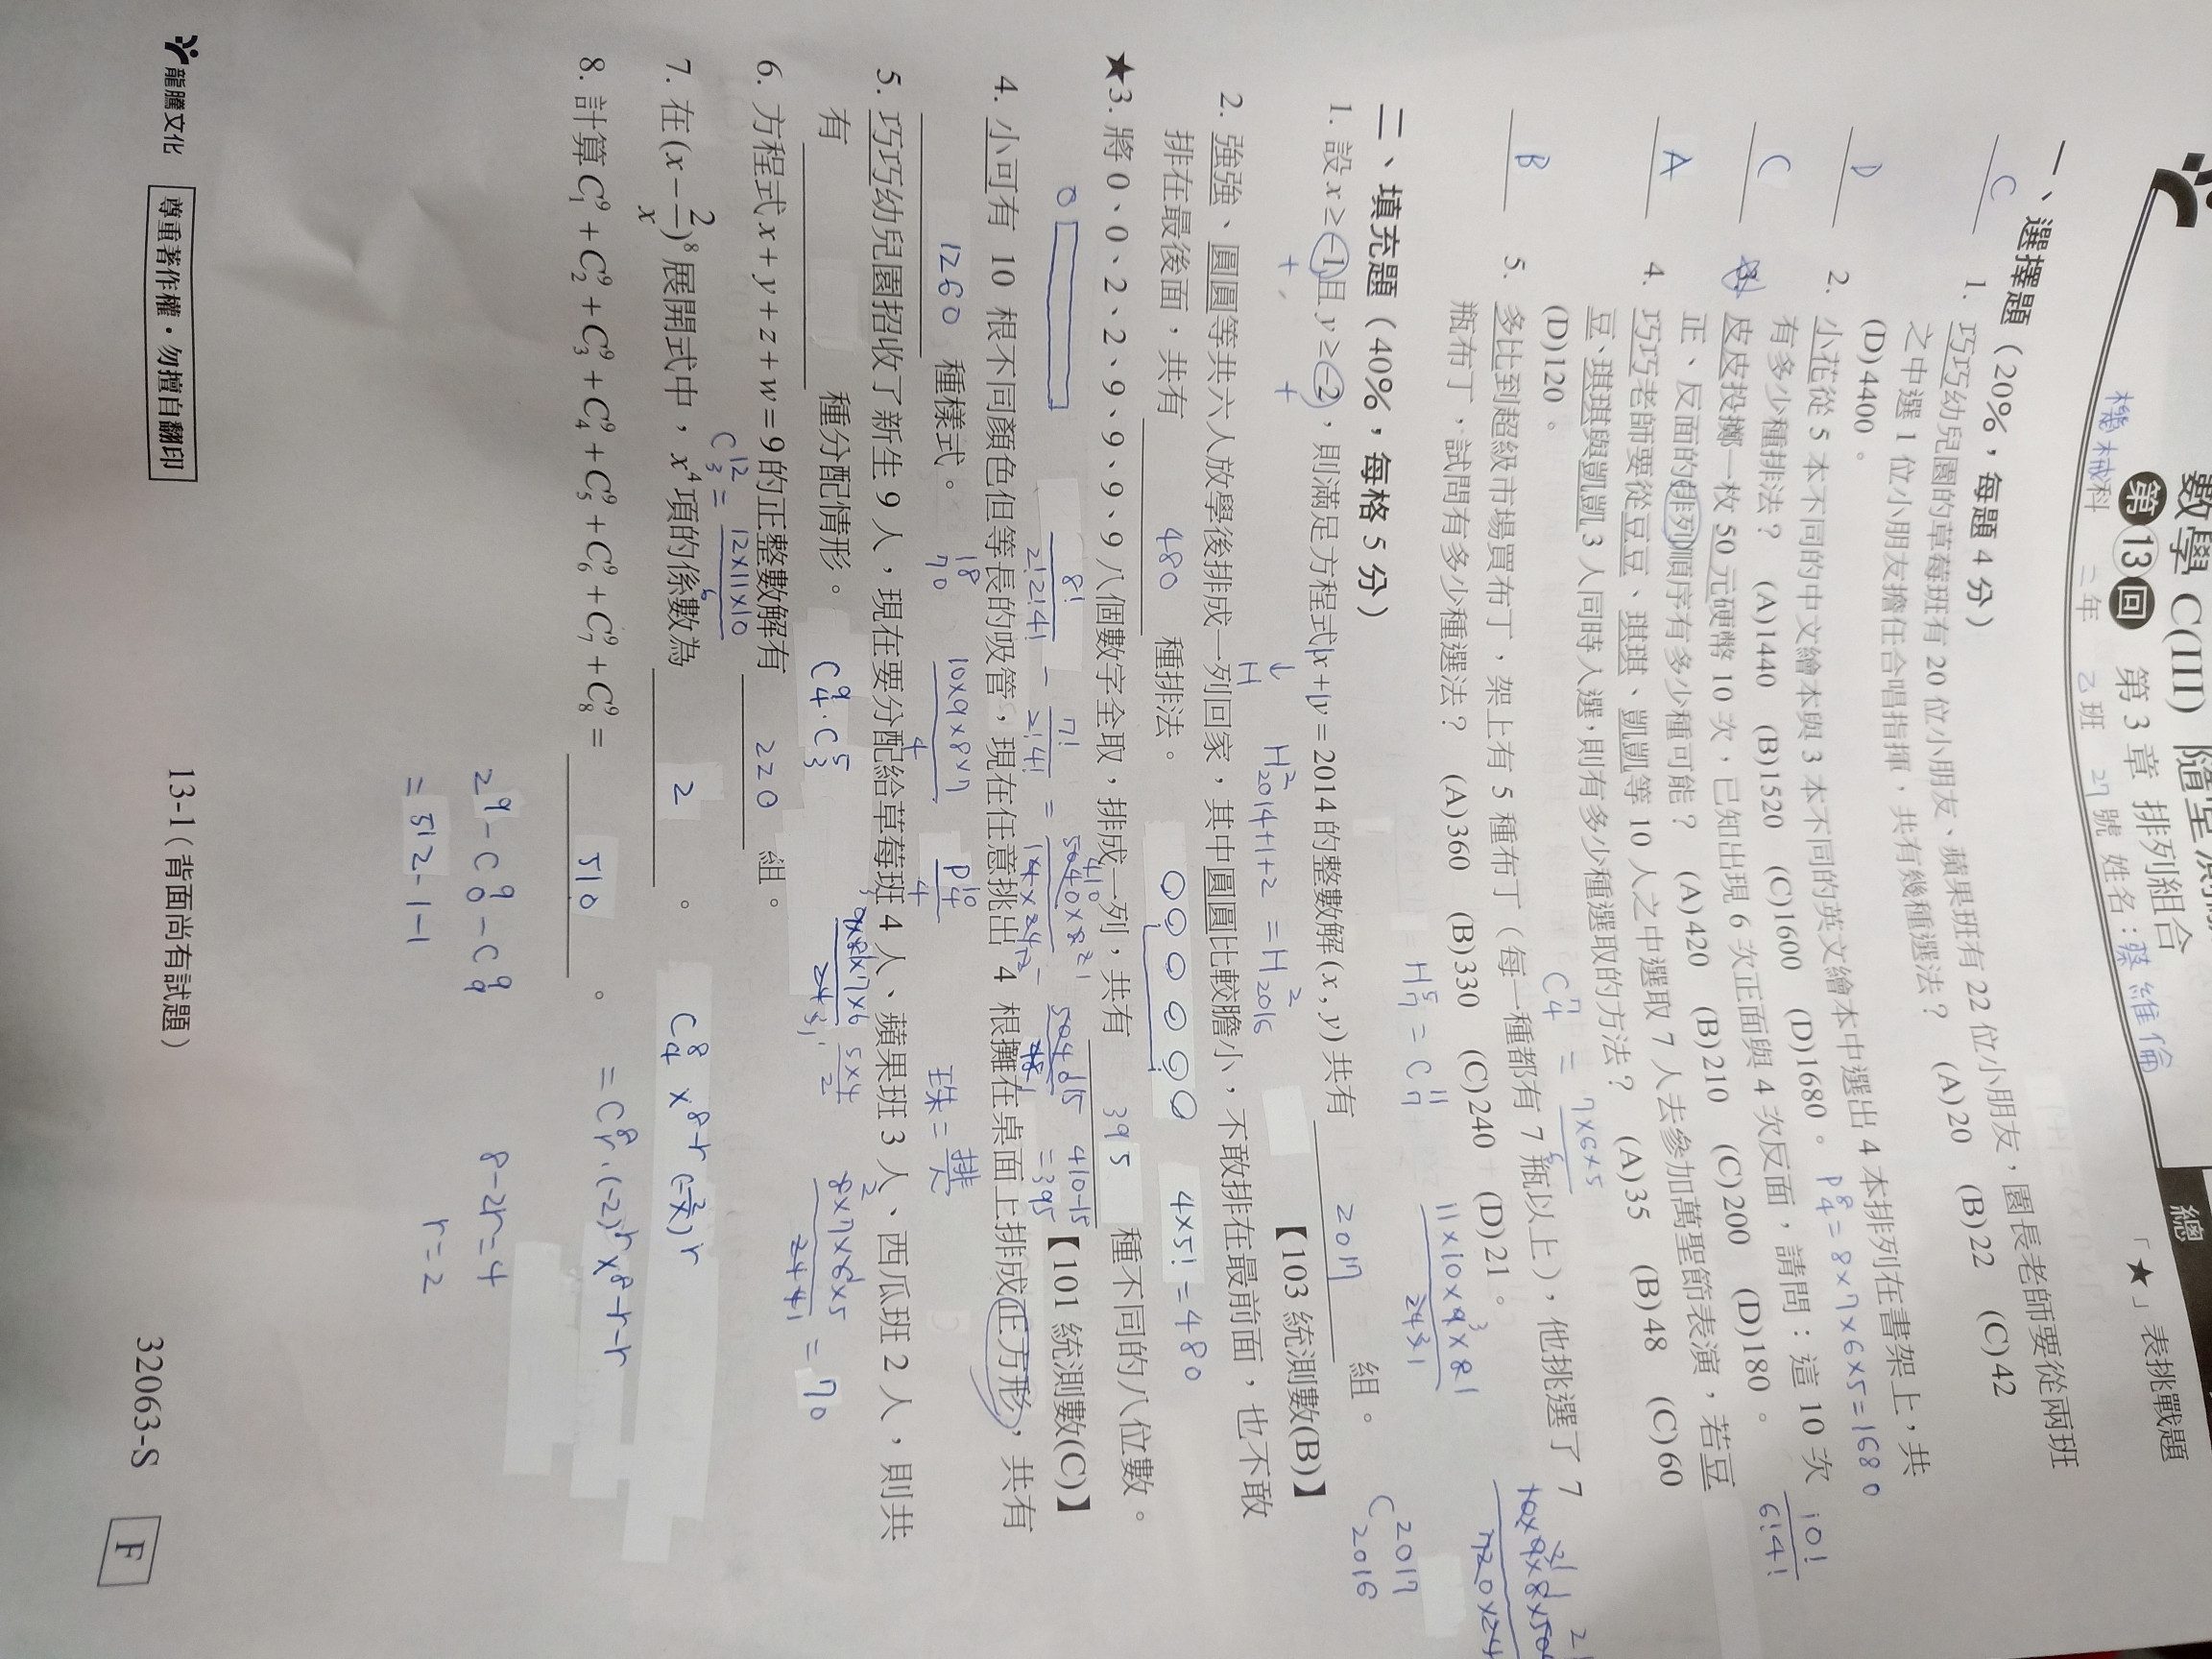 數學 C(III) 隨堂
總
第13回 第 3 章 排列組合
「★」表挑戰題
機械科 二年 乙班 27號 姓名：蔡維倫
一、選擇題（20%，每題 4 分）
C 1. 巧巧幼兒園的草莓班有 20 位小朋友、蘋果班有 22 位小朋友，園長老師要從兩班
之中選 1 位小朋友擔任合唱指揮，共有幾種選法？ (A)20 (B)22 (C)42
(D)4400。
D 2. 小花從 5 本不同的中文繪本與 3 本不同的英文繪本中選出 4 本排列在書架上，共
有多少種排法？ (A)1440 (B)1520 (C)1600 (D)1680。 P⁸₄=8×7×6×5=1680
C 3. 皮皮投擲一枚 50 元硬幣 10 次，已知出現 6 次正面與 4 次反面，請問：這 10 次
正、反面的排列順序有多少種可能？ (A)420 (B)210 (C)200 (D)180。
10!/6!4!
A 4. 巧巧老師要從豆豆、琪琪、凱凱等 10 人之中選取 7 人去參加萬聖節表演，若豆
豆、琪琪與凱凱 3 人同時入選，則有多少種選取的方法？ (A)35 (B)48 (C)60
(D)120。
C⁷₄ = 7×6×5
B 5. 多比到超級市場買布丁，架上有 5 種布丁（每一種都有 7 瓶以上），他挑選了 7
瓶布丁，試問有多少種選法？ (A)360 (B)330 (C)240 (D)21。
H⁵₇ = C¹¹₇
二、填充題（40%，每格 5 分）
1. 設 x ≥ −1且 y ≥ −2，則滿足方程式 x + y = 2014 的整數解 (x , y) 共有 2017 組。
C²⁰¹⁷₂₀₁₆
H²₂₀₁₄₊₁₊₂ = H²₂₀₁₆
【103 統測數(B)】
2. 強強、圓圓等共六人放學後排成一列回家，其中圓圓比較膽小，不敢排在最前面，也不敢
排在最後面，共有 480 種排法。
4×5!=480
★3. 將 0、0、2、2、9、9、9、9 八個數字全取，排成一列，共有 395 種不同的八位數。
【101 統測數(C)】
8!/2!2!4! − 7!/2!4! =
410−15
=395
4. 小可有 10 根不同顏色但等長的吸管，現在任意挑出 4 根攤在桌面上排成正方形，共有
1260 種樣式。
10×9×8×7/4
P¹⁰₄/4
5. 巧巧幼兒園招收了新生 9 人，現在要分配給草莓班 4 人、蘋果班 3 人、西瓜班 2 人，則共
有 種分配情形。
C⁹₄·C⁵₃
= 70
6. 方程式 x + y + z + w = 9 的正整數解有 220 組。
C¹²₃ = 12×11×10/6
7. 在 (x − 2/x)⁸ 展開式中，x⁴ 項的係數為 2 。
=C⁸ᵣ·(−2)ʳ x⁸⁻ʳ⁻ʳ
8−2r=4
r=2
8. 計算 C⁹₁ + C⁹₂ + C⁹₃ + C⁹₄ + C⁹₅ + C⁹₆ + C⁹₇ + C⁹₈ = 510 。
2⁹−C⁹₀−C⁹₉
=512−1−1
龍騰文化 尊重著作權・勿擅自翻印
13-1（背面尚有試題）
32063-S F